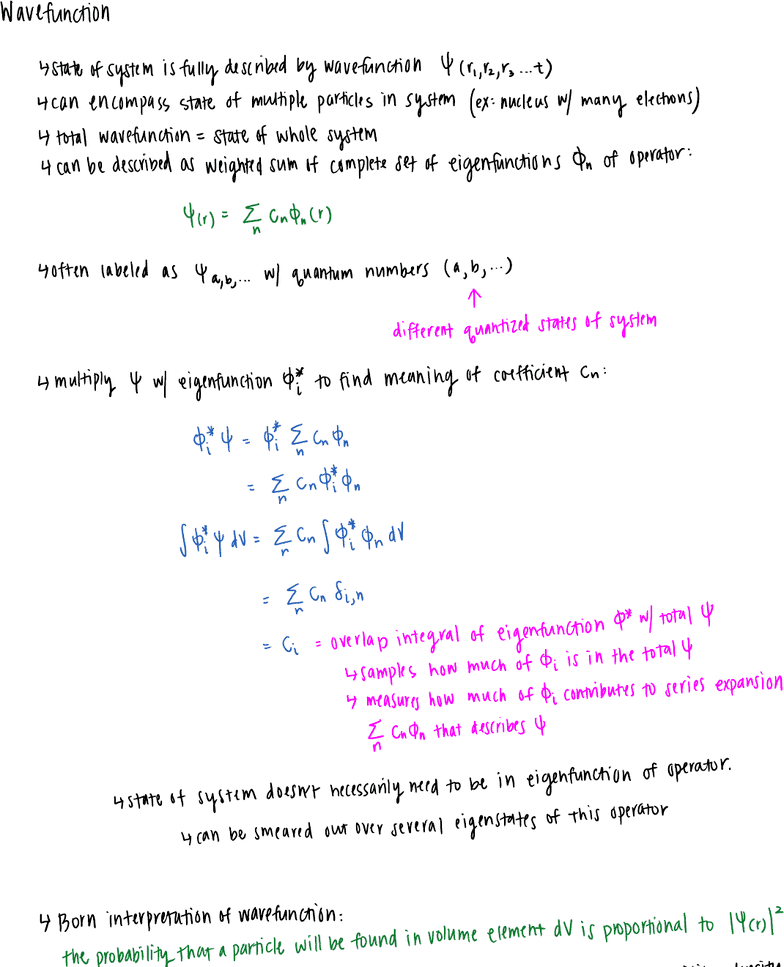 Wavefunction
↳ state of system is fully described by wavefunction Ψ(r₁,r₂,r₃...t)
↳ can encompass state of multiple particles in system (ex: nucleus w/ many electrons)
↳ total wavefunction = state of whole system
↳ can be described as weighted sum of complete set of eigenfunctions ϕn of operator:
Ψ(r) = Σn cnϕn(r)
↳ often labeled as Ψa,b,... w/ quantum numbers (a,b,...)
↑
different quantized states of system
↳ multiply Ψ w/ eigenfunction ϕi* to find meaning of coefficient cn:
ϕi*Ψ = ϕi* Σn cnϕn
= Σn cnϕi*ϕn
∫ϕi*Ψ dV = Σn cn ∫ϕi*ϕn dV
= Σn cn δi,n
= ci = overlap integral of eigenfunction ϕ* w/ total Ψ
↳ samples how much of ϕi is in the total Ψ
↳ measures how much of ϕi contributes to series expansion
Σn cnϕn that describes Ψ
↳ state of system doesn't necessarily need to be in eigenfunction of operator.
↳ can be smeared out over several eigenstates of this operator
↳ Born interpretation of wavefunction:
the probability that a particle will be found in volume element dV is proportional to |Ψ(r)|²